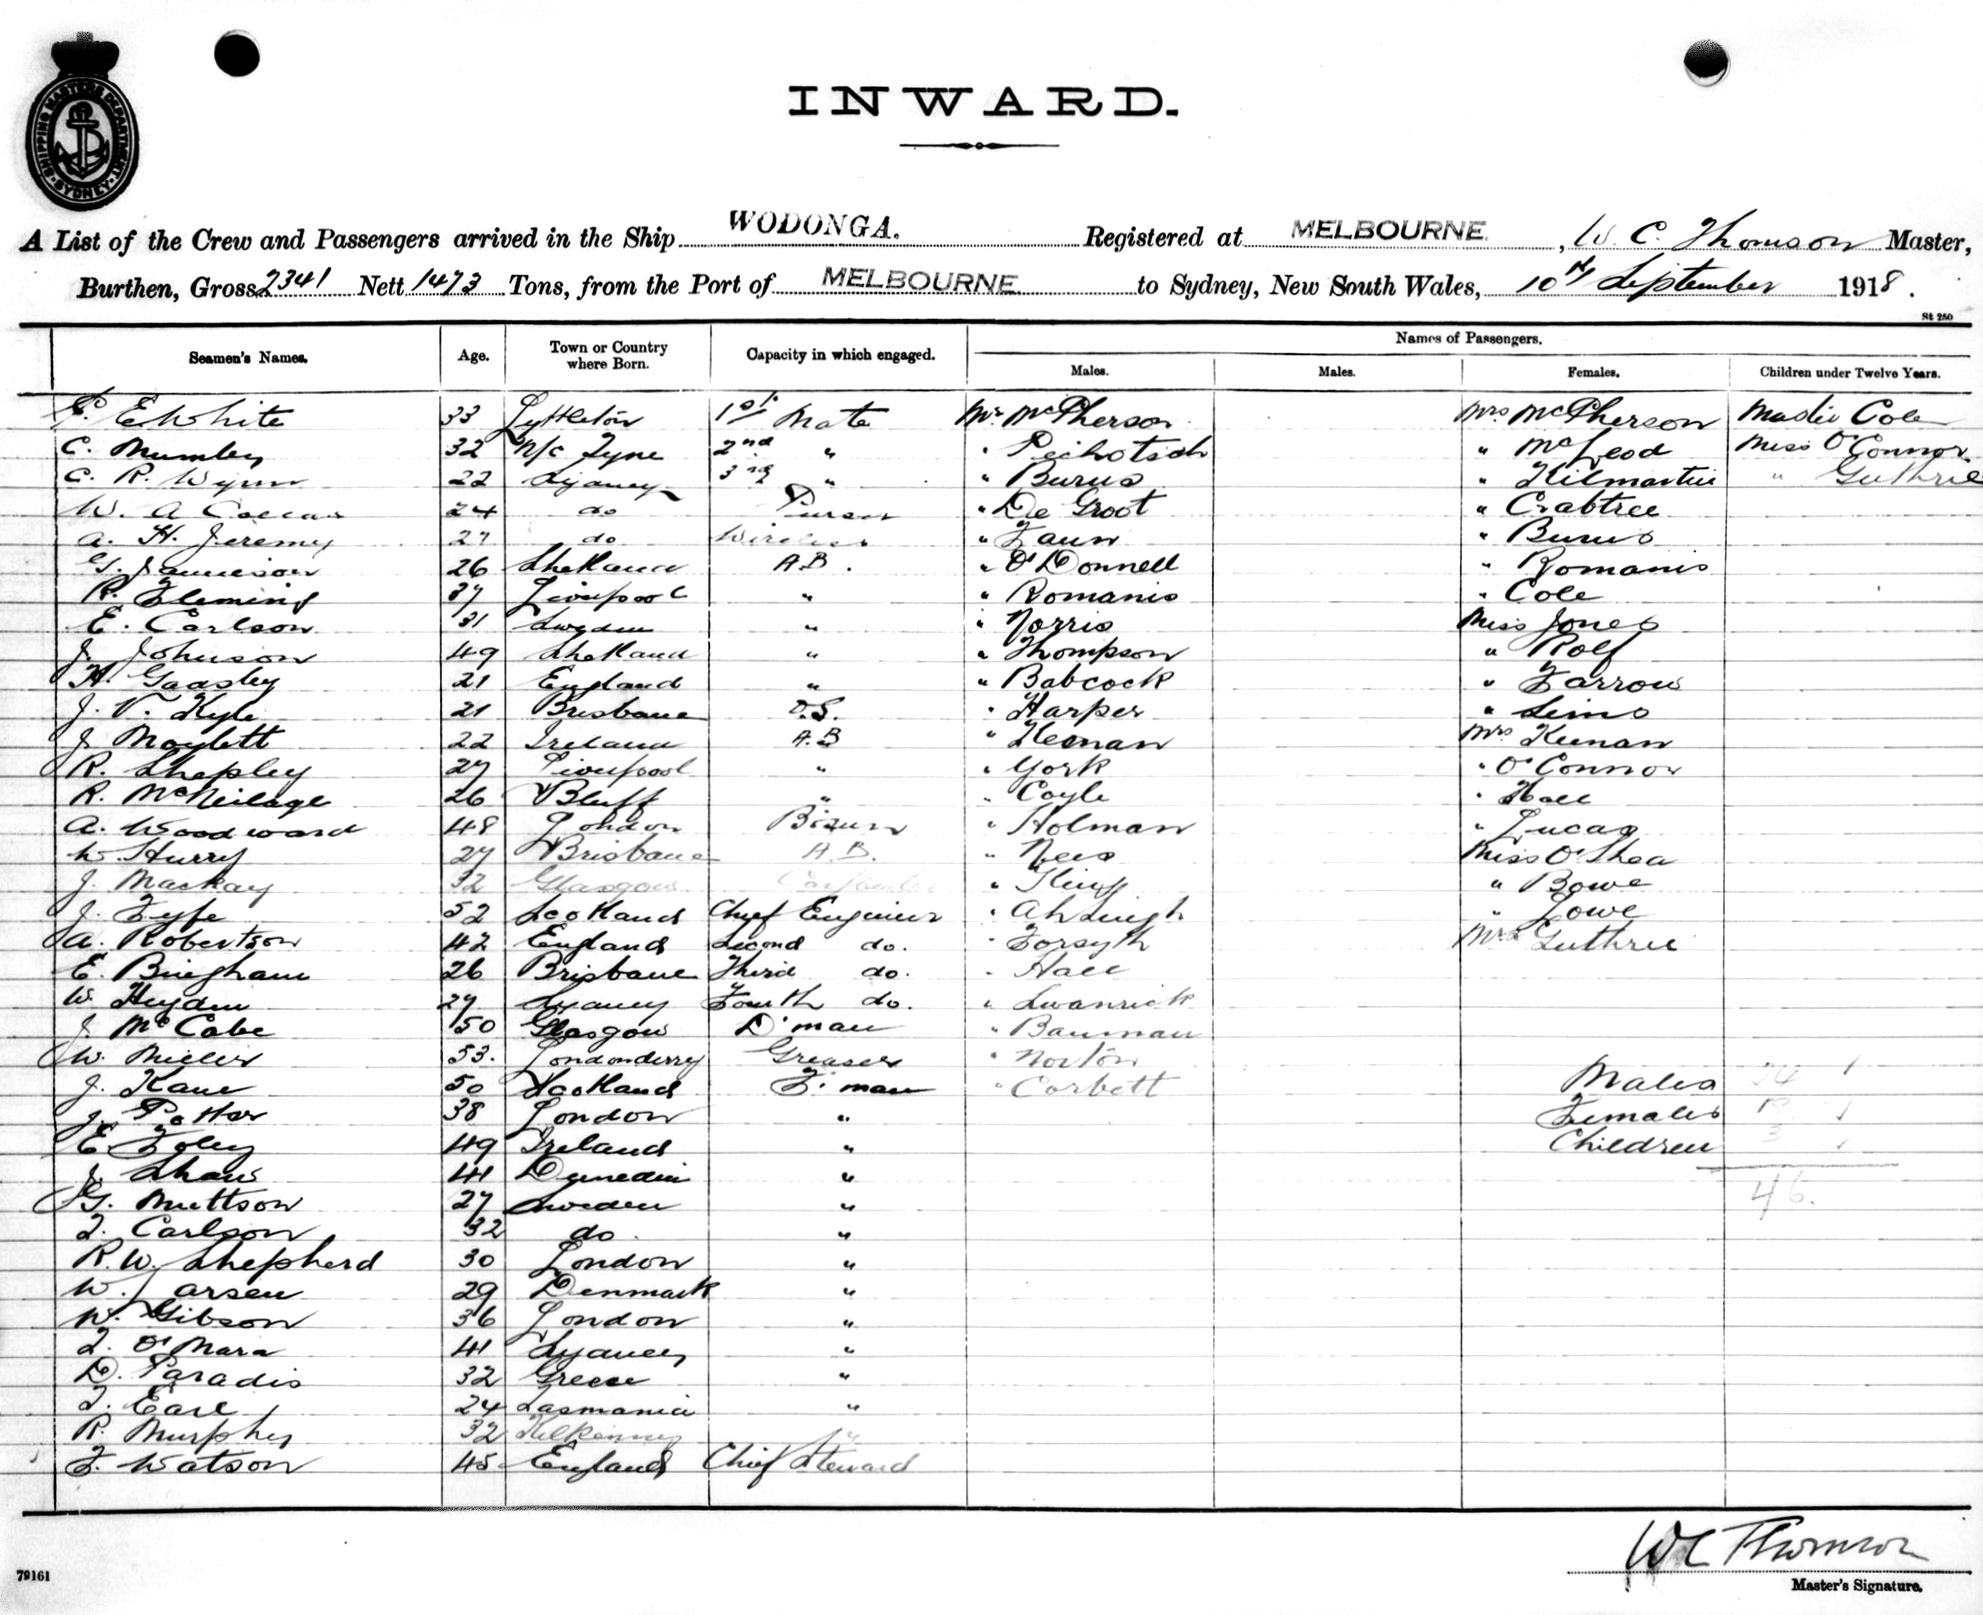 SHIPPING MASTERS DEPARTMENT SYDNEY
INWARD.
A List of the Crew and Passengers arrived in the Ship WODONGA. Registered at MELBOURNE. , W. C. Thomson Master,
Burthen, Gross 2341 Nett 1473 Tons, from the Port of MELBOURNE to Sydney, New South Wales, 10th September 1918.
St 250
Names of Passengers.
Seamen's Names. Age. Town or Country where Born. Capacity in which engaged. Males. Males. Females. Children under Twelve Years.
E White 33 Lyttleton 1st Mate Mr McPherson Mrs McPherson Cole
C. Mumby 32 N/c Tyne 2nd " " " McLeod Miss O'Connor
C. R. Wynn 22 Sydney 3rd " " Burns " Kilmartin " Guthrie
W. A 24 do Purser " De Groot " Crabtree
A. H. Jeremy 27 do Wireless " " Burns
G. Jamieson 26 Shetland A.B. " O'Donnell " Romanis
R. Fleming 37 Liverpool " " Romanis " Cole
E. Carlson 31 Sweden " " Norris Miss Jones
J. Johnson 49 Shetland " " Thompson " Rolf
H. Gadsby 21 England " " Babcock " Farrow
J. V. Kyle 21 Brisbane O.S. " Harper " Sims
J. Moylett 22 Ireland A.B " Heenan Mrs Keenan
R. Shepley 27 Liverpool " " York " O'Connor
R. McNeilage 26 Bluff " " Coyle " Hall
A. Woodward 48 London Bosun " Holman " Lucas
W. Hurry 27 Brisbane A.B. " Nees Miss O'Shea
J. Mackay 32 Glasgow Carpenter " " Bowe
J. Fyfe 52 Scotland Chief Engineer " " Lowe
A. Robertson 42 England Second do. " Forsyth Mrs Guthrie
E. Bingham 26 Brisbane Third do. " Hall
W. Heyden 27 Sydney Fourth do. " Swanrick
J. McCabe 50 Glasgow D'man " Bauman
W. Miller 53. Londonderry Greaser " Norton
J. Kane 50 Scotland F'man " Corbett Males 24
J. Potter 38 London " Females 19
E Foley 49 Ireland " Children 3
J. Shaw 41 Dunedin "
G. Muttson 27 Sweden " 46.
F. Carlson 32 do "
R. W. Shepherd 30 London "
W. Larsen 29 Denmark "
W. Gibson 36 London "
F. O'Mara 41 Sydney "
D. Paradis 32 Greece "
F. Earl 24 Tasmania "
R. Murphy 32 Kilkenny "
F. Watson 45 England Chief Steward
WC Thomson
Master's Signature.
79161